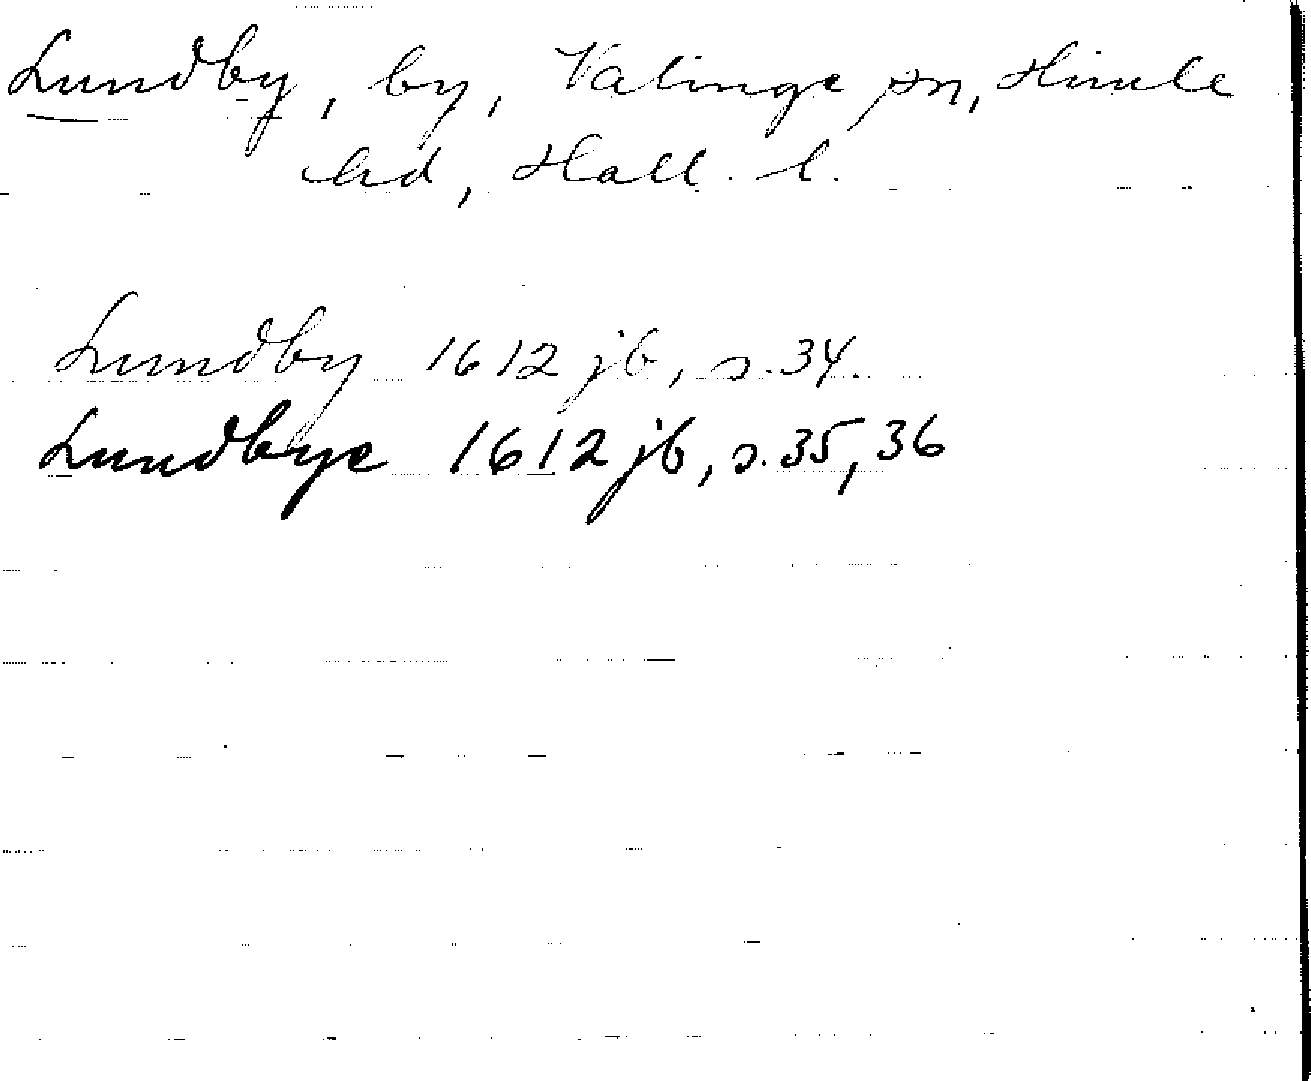 Lundby, by, Valinge sn, Himle
hd, Hall. l.
Lundby 1612 jb, s. 34.
Lundbye 1612 jb, s. 35, 36